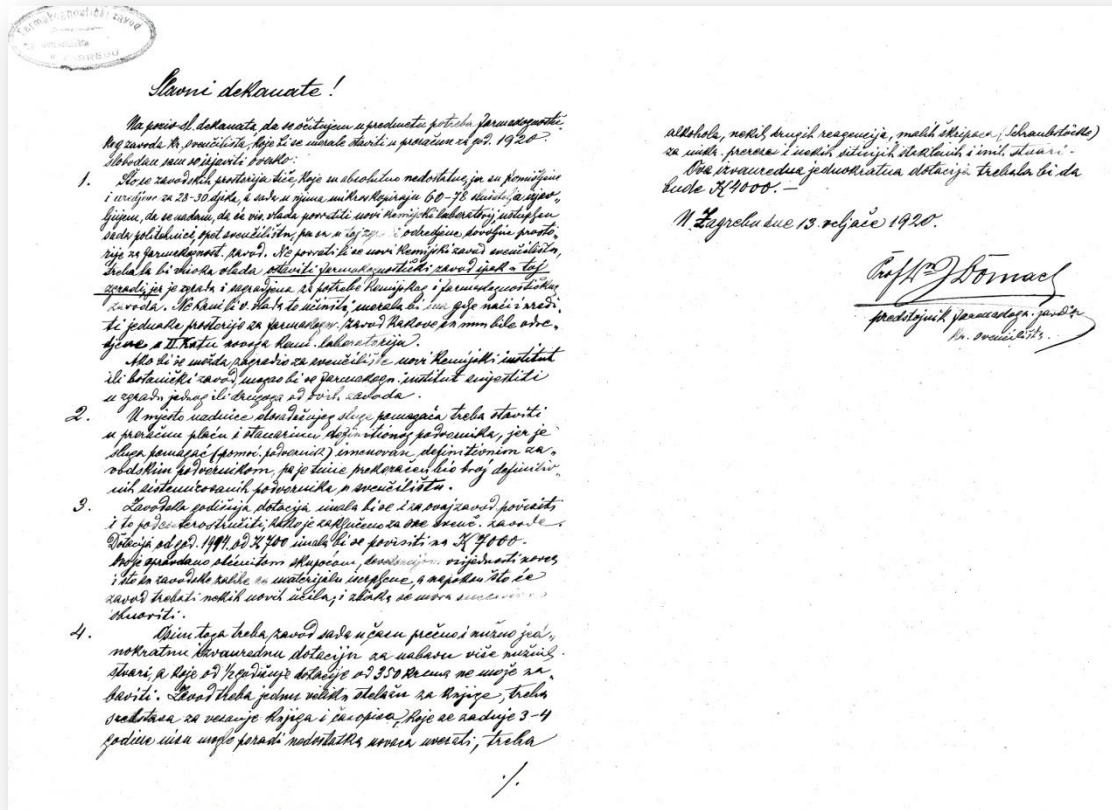 Farmakognostički zavod
U ZAGREBU
Slavni dekanate!
Na poziv sl. dekanata, da se očitujem u predmetu potreba farmakognostič-
kog zavoda kr. sveučilišta, koje bi se morale staviti u proračun za god. 1920
slobodan sam izjaviti ovo:
1. Što se zavodskih prostorija tiče, koje su absolutno nedostatne, jer su pomišljene
i uredjene za 28-30 djaka, a sada u njima mikroskopiraju 60-78 izjav-
ljujem, da se nadam, da će vis. vlada povratiti novi kemijski laboratorij ustupljen
sada politehnici, opet sveučilištu, pa se u toj i odredjene dovoljne prosto-
rije za farmakognost. zavod. Ne povrati li se novi kemijski zavod sveučilištu,
trebala bi visoka vlada ostaviti farmakognostički zavod ipak u toj
zgradi, jer je zgrada i sagradjena za potrebe kemijskog i farmakognostičkog
zavoda. Ne kani li v. vlada to učiniti, morala bi gdje naći i uredi-
ti jednake prostorije za farmakogn. zavod kakove su mu bile odre-
djene u II. katu novoga kem. laboratorija.
Ako bi se možda zagradio za sveučilište novi kemijski institut
ili botanički zavod, mogao bi se farmakogn. institut smjestiti
u zgradu jednog ili drugoga od ovih zavoda.
2. U mjesto nadnice dosadašnjeg sluge pomagača treba staviti
u proračun plaću i stanarinu definitivnog podvornika, jer je
sluga pomagač (pomoć. podvornik) imenovan definitivnim za-
vodskim podvornikom, pa je time prekoračen bio broj definitiv-
nih sistemizovanih podvornika u sveučilištu.
3. Zavodska godišnja dotacija imala bi se i za ovaj zavod povisiti
i to podeseterostručiti, kako je zaključeno za sve sveuč. zavode.
Dotacija od god. 1914. od K 700 imala bi se povisiti na K 7000.-
Ovo je opravdano očitom skupoćom, vrijednosti novca
i što su zavodske zalihe na materijalu iscrpljene, a napokon što će
zavod trebati nekih novih učila, i zbirka se mora
obnoviti.
4. Osim toga treba zavod sada u času prečno i nužno jed-
nokratnu izvanrednu dotaciju za nabavu više nužnih
stvari, a koje od ½ godišnje dotacije od 350 kruna ne može na-
baviti. Zavod treba jednu veliku stelažu za knjige, treba
sredstava za vezanje knjiga i časopisa, koje se zadnje 3-4
godine nisu mogle poradi nedostatka novaca uvezati, treba
./.
alkohola, nekih drugih reagencija, malih škripaca (Schraubstöcke)
za mikr. prereze i nekih sitnijih staklenih i inih stvari.
Ova izvanredna jednokratna dotacija trebala bi da
bude K 4000.-
U Zagrebu dne 13. veljače 1920.
Prof. Dr J Domac
predstojnik farmakogn. zavoda
kr. sveučilišta.